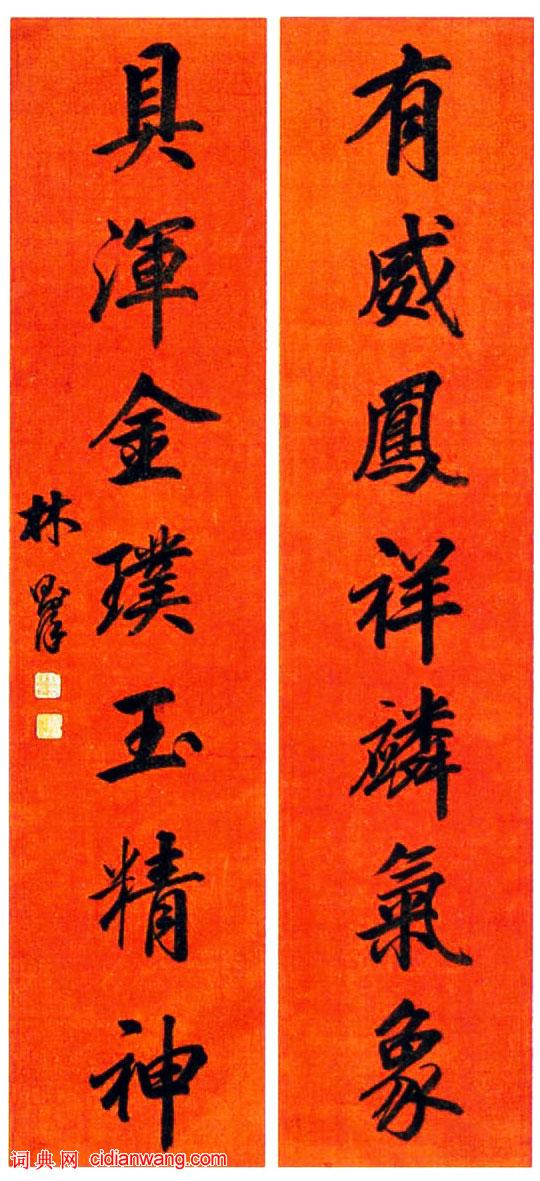 有威鳳祥麟氣象
具渾金璞玉精神
林
词典网 cidianwang.com